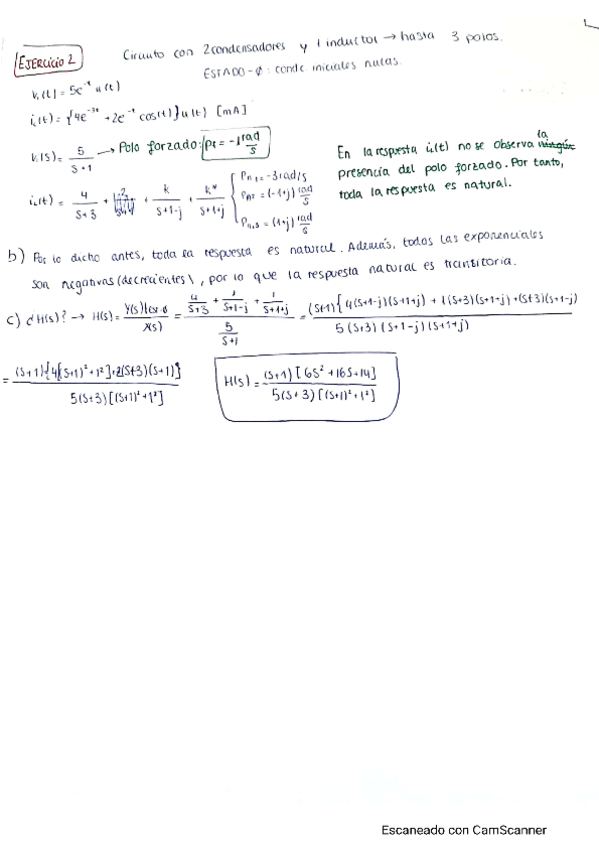 EJERCICIO 2
Circuito con 2 condensadores y 1 inductor → hasta 3 polos.
ESTADO-∅: condic iniciales nulas.
v₁(t) = 5e⁻ᵗ u(t)
i₀(t) = {4e⁻³ᵗ + 2e⁻ᵗ cos(t)} u(t) [mA]
V₁(s) = 5/(s+1) → Polo forzado: pf = -1 rad/s
En la respuesta i₀(t) no se observa la
presencia del polo forzado. Por tanto,
toda la respuesta es natural.
i₀(t) = 4/(s+3) + k/(s+1-j) + k*/(s+1+j) { Pn1 = -3 rad/s
Pn2 = (-1+j) rad/s
Pn3 = (1+j) rad/s
b) Por lo dicho antes, toda la respuesta es natural. Además, todas las exponenciales
son negativas (decrecientes), por lo que la respuesta natural es transitoria.
c) ¿H(s)? → H(s) = Y(s)|est-∅ / X(s) = (4/(s+3) + 1/(s+1-j) + 1/(s+1+j)) / (5/(s+1)) = (s+1){4(s+1-j)(s+1+j) + 1(s+3)(s+1-j) + (s+3)(s+1-j)} / 5(s+3)(s+1-j)(s+1+j)
= (s+1){4[(s+1)²+1²]+2(s+3)(s+1)} / 5(s+3)[(s+1)²+1²]
H(s) = (s+1)[6s²+16s+14] / 5(s+3)[(s+1)²+1²]
Escaneado con CamScanner